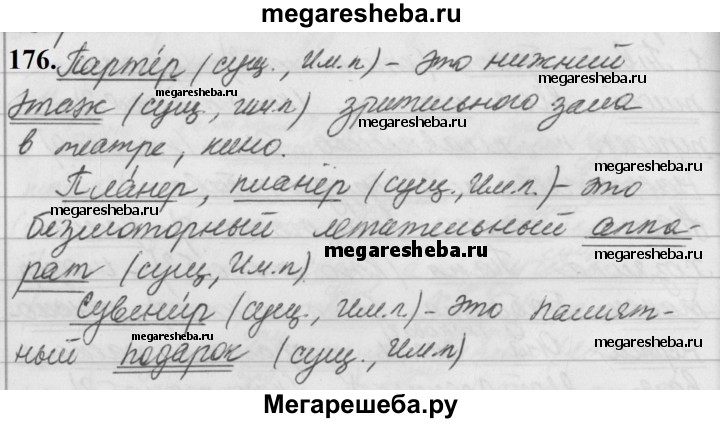 megaresheba.ru
176. Партéр (сущ., Им.п.) – это нижний
megaresheba.ru
этаж (сущ., Им.п) зрительного зала
megaresheba.ru
megaresheba.ru
в театре, кино.
megaresheba.ru
Плáнер, планёр (сущ., Им.п.) – это
megaresheba.ru
безмоторный летательный аппа-
megaresheba.ru
рат (сущ., Им.п)
megaresheba.ru
Сувенúр (сущ., Им.п.) – это памят-
megaresheba.ru
megaresheba.ru
ный подарок (сущ., Им.п)
Мегарешеба.ру